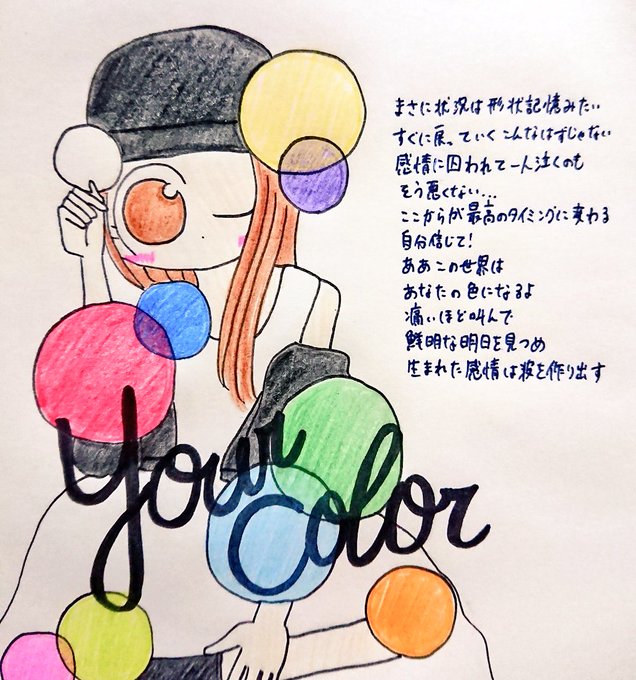 まさに状況は形状記憶みたい
すぐに戻っていくこんなはずじゃない
感情に囚われて一人泣くのも
そう悪くない…
ここからが最高のタイミングに変わる
自分信じて!
ああこの世界は
あなたの色になるよ
痛いほど叫んで
鮮明な明日を見つめ
生まれた感情は波を作り出す
your
Color